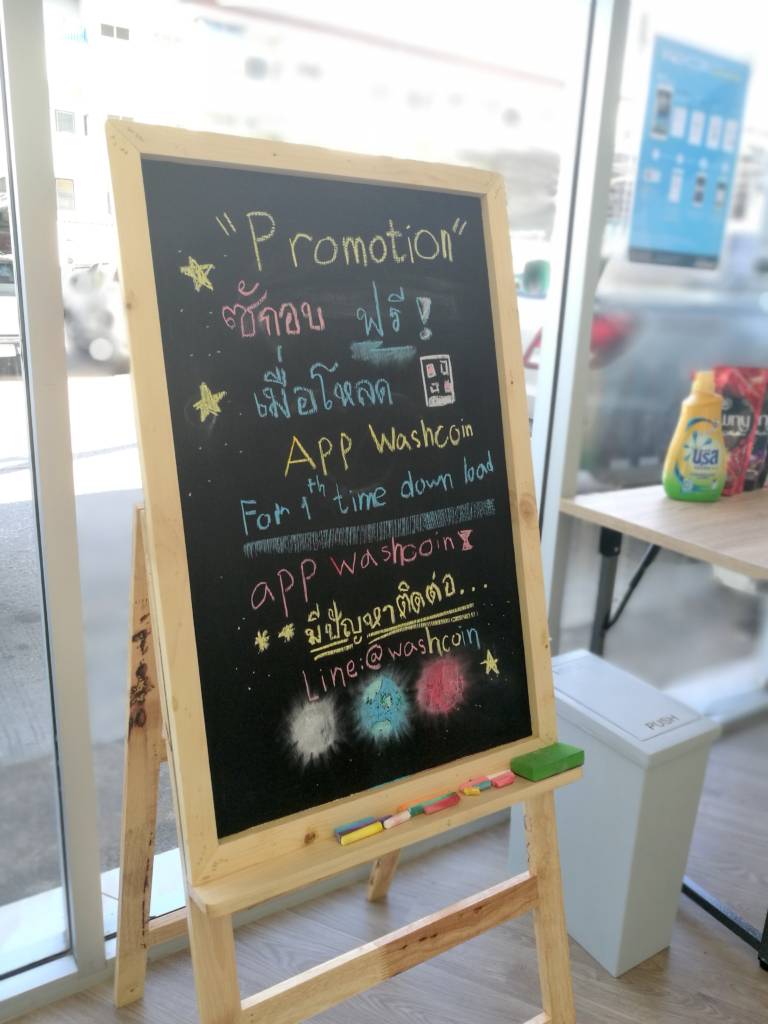 "Promotion"
ซักอบ ฟรี!
เมื่อโหลด
App Washcoin
For 1th time down load
app washcoin
** มีปัญหาติดต่อ...
Line:@washcoin
บรีส
PUSH